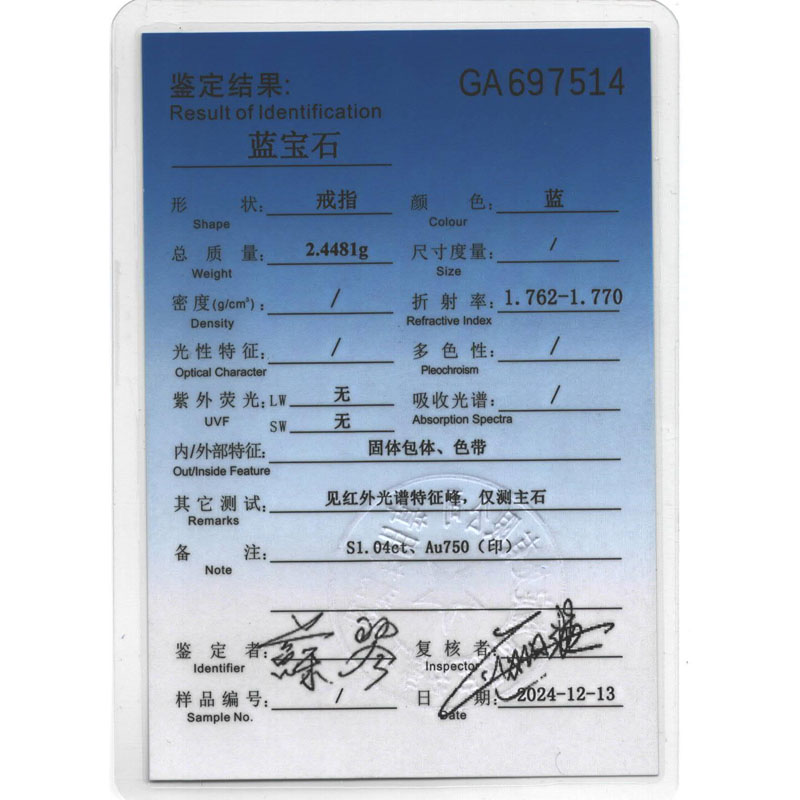 鉴定结果: GA697514
Result of Identification
蓝宝石
形 状: 戒指 颜 色: 蓝
Shape Colour
总 质 量: 2.4481g 尺寸度量: /
Weight Size
密度(g/cm³): / 折 射 率: 1.762-1.770
Density Refractive Index
光性特征: / 多 色 性: /
Optical Character Pleochroism
紫外荧光: LW 无 吸收光谱: /
UVF SW 无 Absorption Spectra
内/外部特征: 固体包体、色带
Out/Inside Feature
其它测试: 见红外光谱特征峰，仅测主石
Remarks
备 注: S1.04ct、Au750（印）
Note
鉴 定 者: 复 核 者:
Identifier Inspector
样品编号: / 日 期: 2024-12-13
Sample No. Date